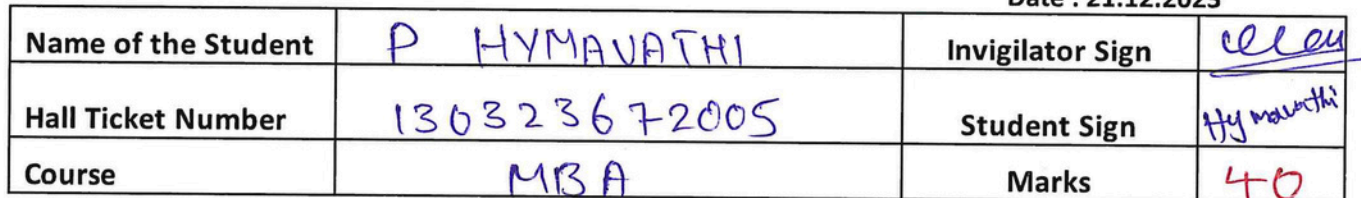 Date : 21.12.2023
Name of the Student P HYMAVATHI Invigilator Sign
Hall Ticket Number 130323672005 Student Sign Hymavathi
Course MBA Marks 40